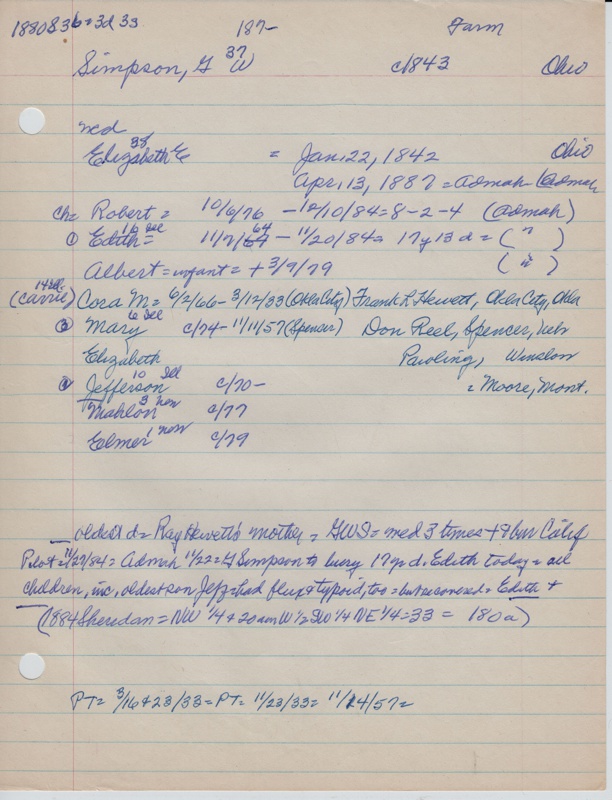 1880836=3d 33 187- Farm
Simpson, G W 37 c/1843 Ohio
med
Elizabeth E 38 = Jan. 22, 1842 Ohio
Apr. 13, 1887 = Admah (Admah
ch= Robert = 10/6/76 - 12/10/84 = 8-2-4 (Admah)
① Edith = 16 Ill 11/7/64 - 11/20/84 = 17y 13d = ( " )
Albert = infant = + 3/9/79 ( " )
(Carrie) 14 Ill Cora M = 6/2/66 - 3/12/33 (Okla City) Frank L Hewett, Okla City, Okla
③ Mary 6 Ill c/74 - 11/11/57 (Spencer) Don Reel, Spencer, Neb
Elizabeth Pauling, Winslow
Jefferson 10 Ill c/70- = Moore, Mont.
Mahlon 3 Neb c/77
Elmer 1 Neb c/79
oldest d = Ray Hewett's mother = GWS = med 3 times + Calif
Pilot = 11/27/84 = Admah 11/22 = G Simpson to bury 17 yr d. Edith today = all
children, inc. oldest son Jeff = had flux + typoid, too = but recovered = Edith +
(1884 Sheridan = NW 1/4 + 20 am W 1/2 SW 1/4 NE 1/4 = 33 = 180a)
PT = 3/16 + 23/33 = PT = 11/23/33 = 11/14/57 =